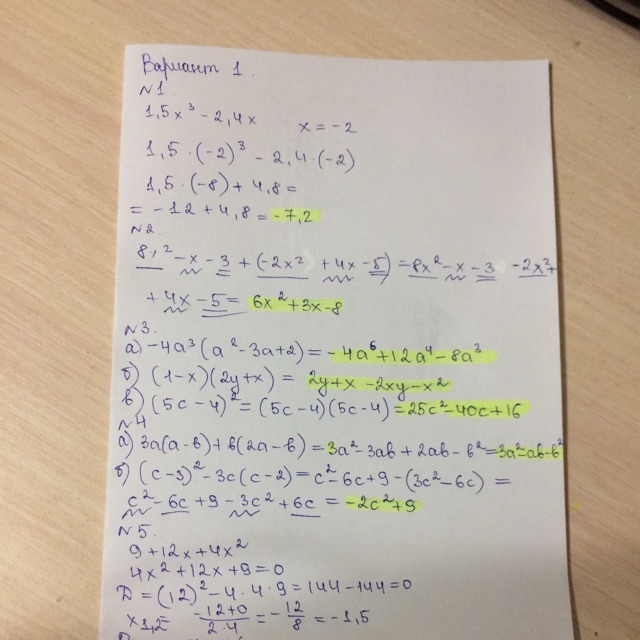 Вариант 1.
№1.
1,5x³ - 2,4x x = -2
1,5 · (-2)³ - 2,4 · (-2)
1,5 · (-8) + 4,8 =
= -12 + 4,8 = -7,2
№2
8x² - x - 3 + (-2x² + 4x - 5) = 8x² - x - 3 - 2x² +
+ 4x - 5 = 6x² + 3x - 8
№3.
а) -4a³(a² - 3a + 2) = -4a⁶ + 12a⁴ - 8a³
б) (1 - x)(2y + x) = 2y + x - 2xy - x²
в) (5c - 4)² = (5c - 4)(5c - 4) = 25c² - 40c + 16
№4
а) 3a(a - b) + b(2a - b) = 3a² - 3ab + 2ab - b² = 3a² - ab - b²
б) (c - 3)² - 3c(c - 2) = c² - 6c + 9 - (3c² - 6c) =
c² - 6c + 9 - 3c² + 6c = -2c² + 9
№5.
9 + 12x + 4x²
4x² + 12x + 9 = 0
D = (12)² - 4 · 4 · 9 = 144 - 144 = 0
x1,2 = -12+0/2·4 = -12/8 = -1,5